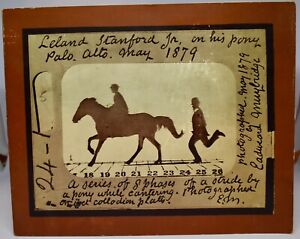 Leland Stanford Jr. on his pony
Palo Alto. May 1879
photographed May 1879
by
Eadweard Muybridge
24-1
18 19 20 21 22 23 24 25 26
A series of 8 phases of a stride by
a pony while cantering. Photographed
on wet collodion plates. Edm.